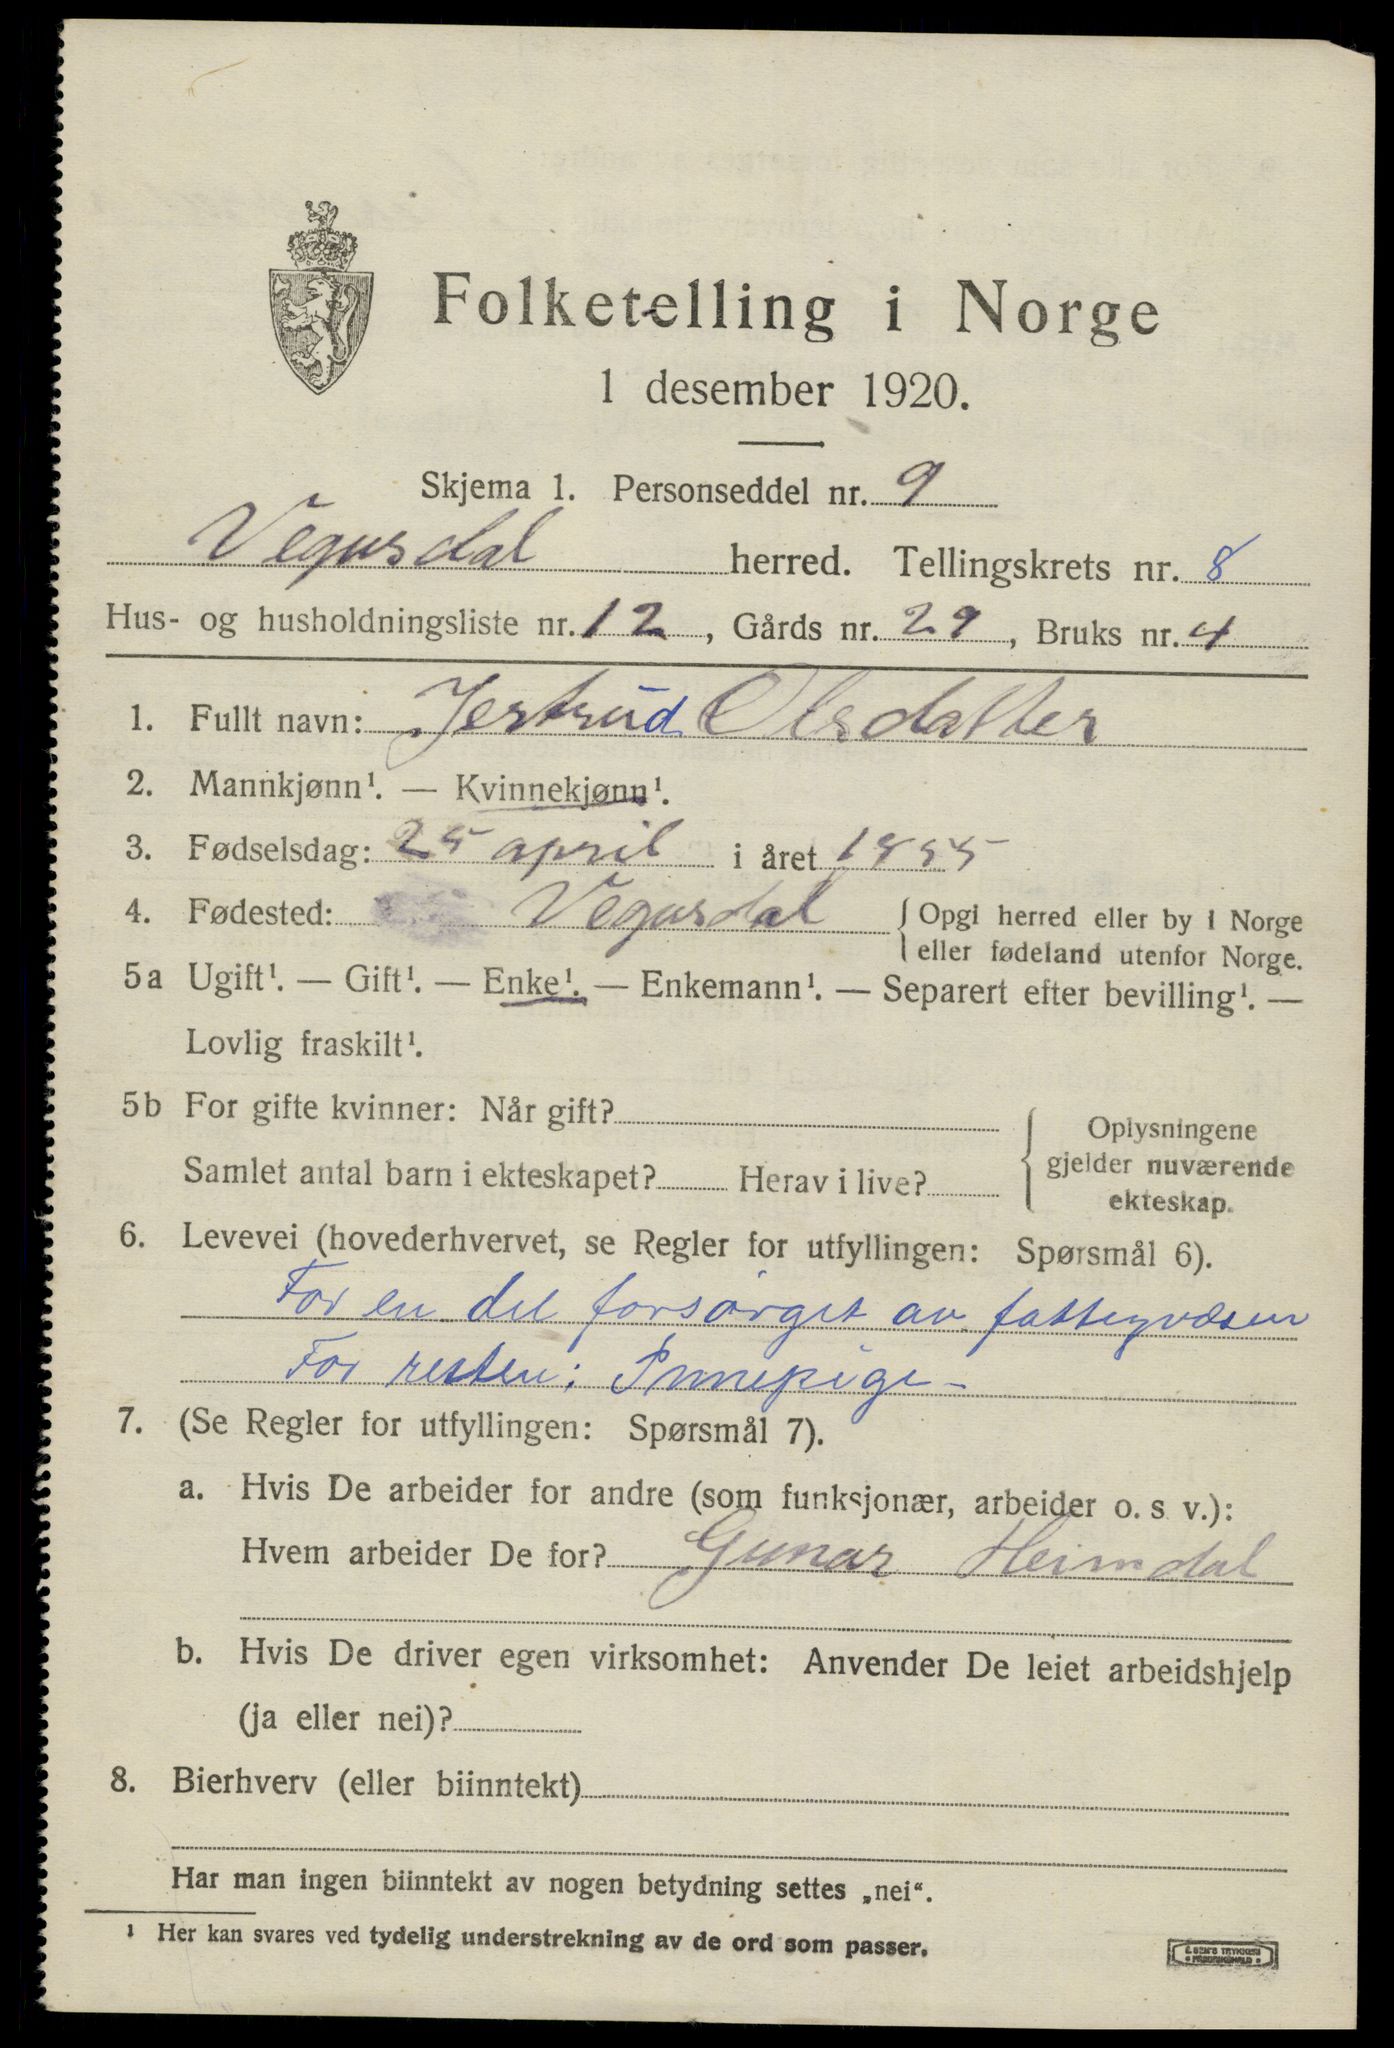 Folketelling i Norge
1 desember 1920.
Skjema 1. Personseddel nr. 9
Vegusdal herred. Tellingskrets nr. 8
Hus- og husholdningsliste nr. 12, Gårds nr. 29, Bruks nr. 4
1. Fullt navn: Jertrud Olsdatter
2. Mannkjønn¹. — Kvinnekjønn¹.
3. Fødselsdag: 25 april i året
4. Fødested: Vegusdal { Opgi herred eller by i Norge
eller fødeland utenfor Norge.
5a Ugift¹. — Gift¹. — Enke¹. — Enkemann¹. — Separert efter bevilling¹. —
Lovlig fraskilt¹.
5b For gifte kvinner: Når gift?
Samlet antal barn i ekteskapet? Herav i live?
{ Oplysningene
gjelder nuværende
ekteskap.
6. Levevei (hovederhvervet, se Regler for utfyllingen: Spørsmål 6).
For en del forsørget av fattigvæsen
For resten:
7. (Se Regler for utfyllingen: Spørsmål 7).
a. Hvis De arbeider for andre (som funksjonær, arbeider o. s v.):
Hvem arbeider De for? Gunar Heimdal
b. Hvis De driver egen virksomhet: Anvender De leiet arbeidshjelp
(ja eller nei)?
8. Bierhverv (eller biinntekt)
Har man ingen biinntekt av nogen betydning settes „nei“.
¹ Her kan svares ved tydelig understrekning av de ord som passer.